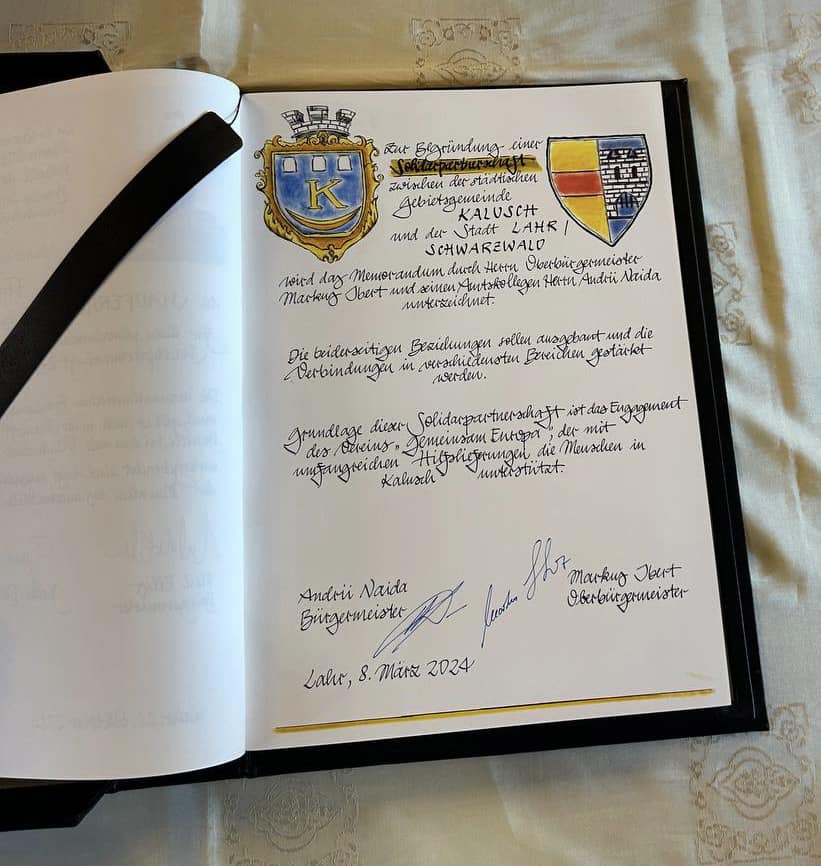 K
Zur Begründung einer
Solidarpartnerschaft
zwischen der städtischen
Gebietsgemeinde
KALUSCH
und der Stadt LAHR /
SCHWARZWALD
wird das Memorandum durch Herrn Oberbürgermeister
Markus Ibert und seinen Amtskollegen Herrn Andrii Naida
unterzeichnet.
Die beiderseitigen Beziehungen sollen ausgebaut und die
Verbindungen in verschiedensten Bereichen gestärkt
werden.
Grundlage dieser Solidarpartnerschaft ist das Engagement
des Vereins „Gemeinsam Europa", der mit
umfangreichen Hilfslieferungen die Menschen in
Kalusch unterstützt.
Andrii Naida
Bürgermeister
Markus Ibert
Oberbürgermeister
Lahr, 8. März 2024